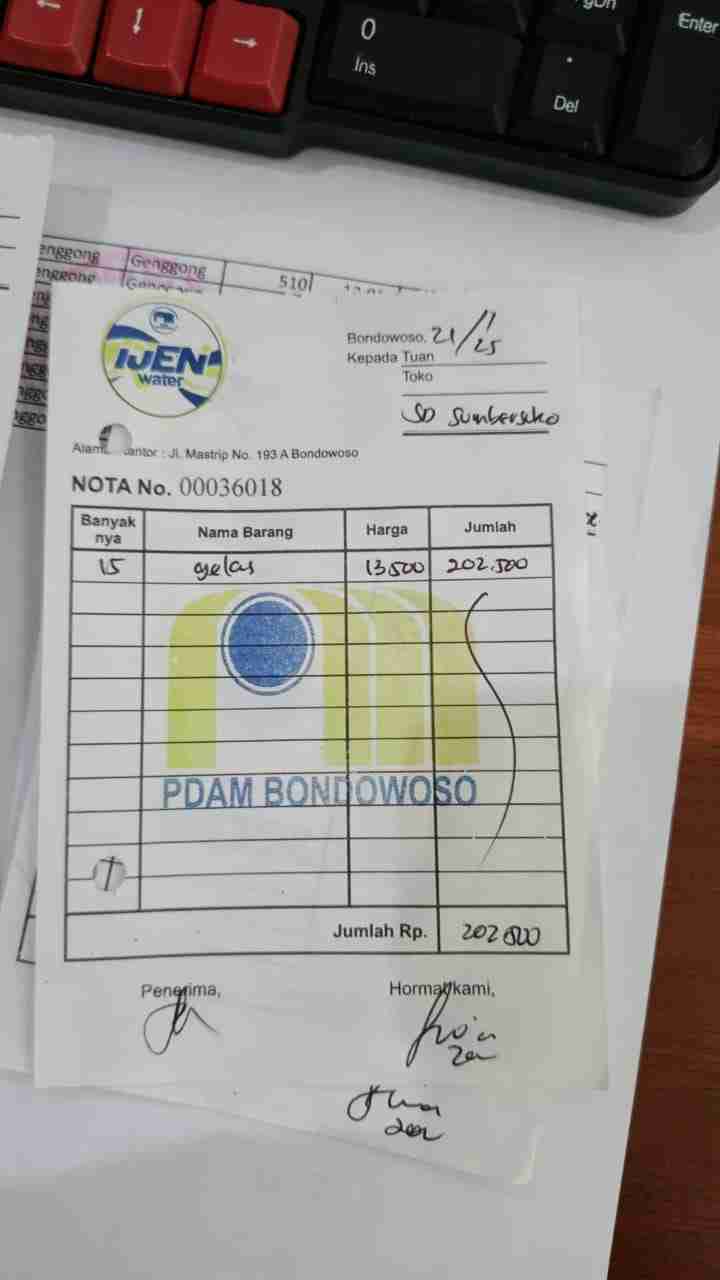 0
Ins
Del
Enter
enggong Genggong 510
IJEN
water
Bondowoso, 21/11/25
Kepada Tuan
Toko
SD Sumberseko
Kantor : Jl. Mastrip No. 193 A Bondowoso
NOTA No. 00036018
Banyak nya Nama Barang Harga Jumlah
15 gelas 13500 202.500
PDAM BONDOWOSO
Jumlah Rp. 202500
Penerima, Hormat kami,